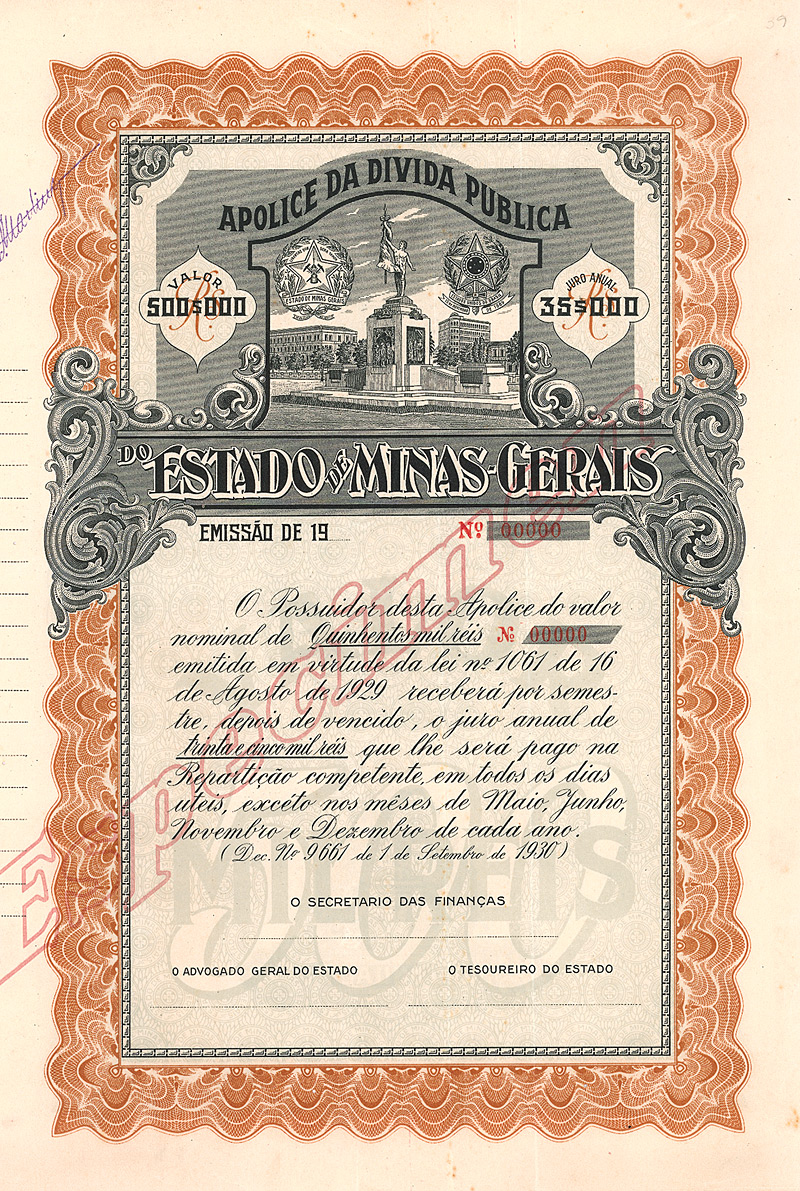 39
APOLICE DA DIVIDA PUBLICA
VALOR
500$000
JURO ANUAL
35$000
ESTADO DE MINAS GERAIS
DO ESTADO DE MINAS-GERAIS
EMISSÃO DE 19
Nº 00000
O Possuidor desta Apolice do valor
nominal de Quinhentos mil réis № 00000
emitida em virtude da lei nº 1061 de 16
de Agosto de 1929 receberá por semes-
tre, depois de vencido, o juro anual de
trinta e cinco mil réis que lhe será pago na
Repartição competente, em todos os dias
uteis, excéto nos mêses de Maio, Junho,
Novembro e Dezembro de cada ano.
(Dec. Nº 9661 de 1 de Setembro de 1930)
500
MIL RÉIS
O SECRETARIO DAS FINANÇAS
O ADVOGADO GERAL DO ESTADO
O TESOUREIRO DO ESTADO
Especimen